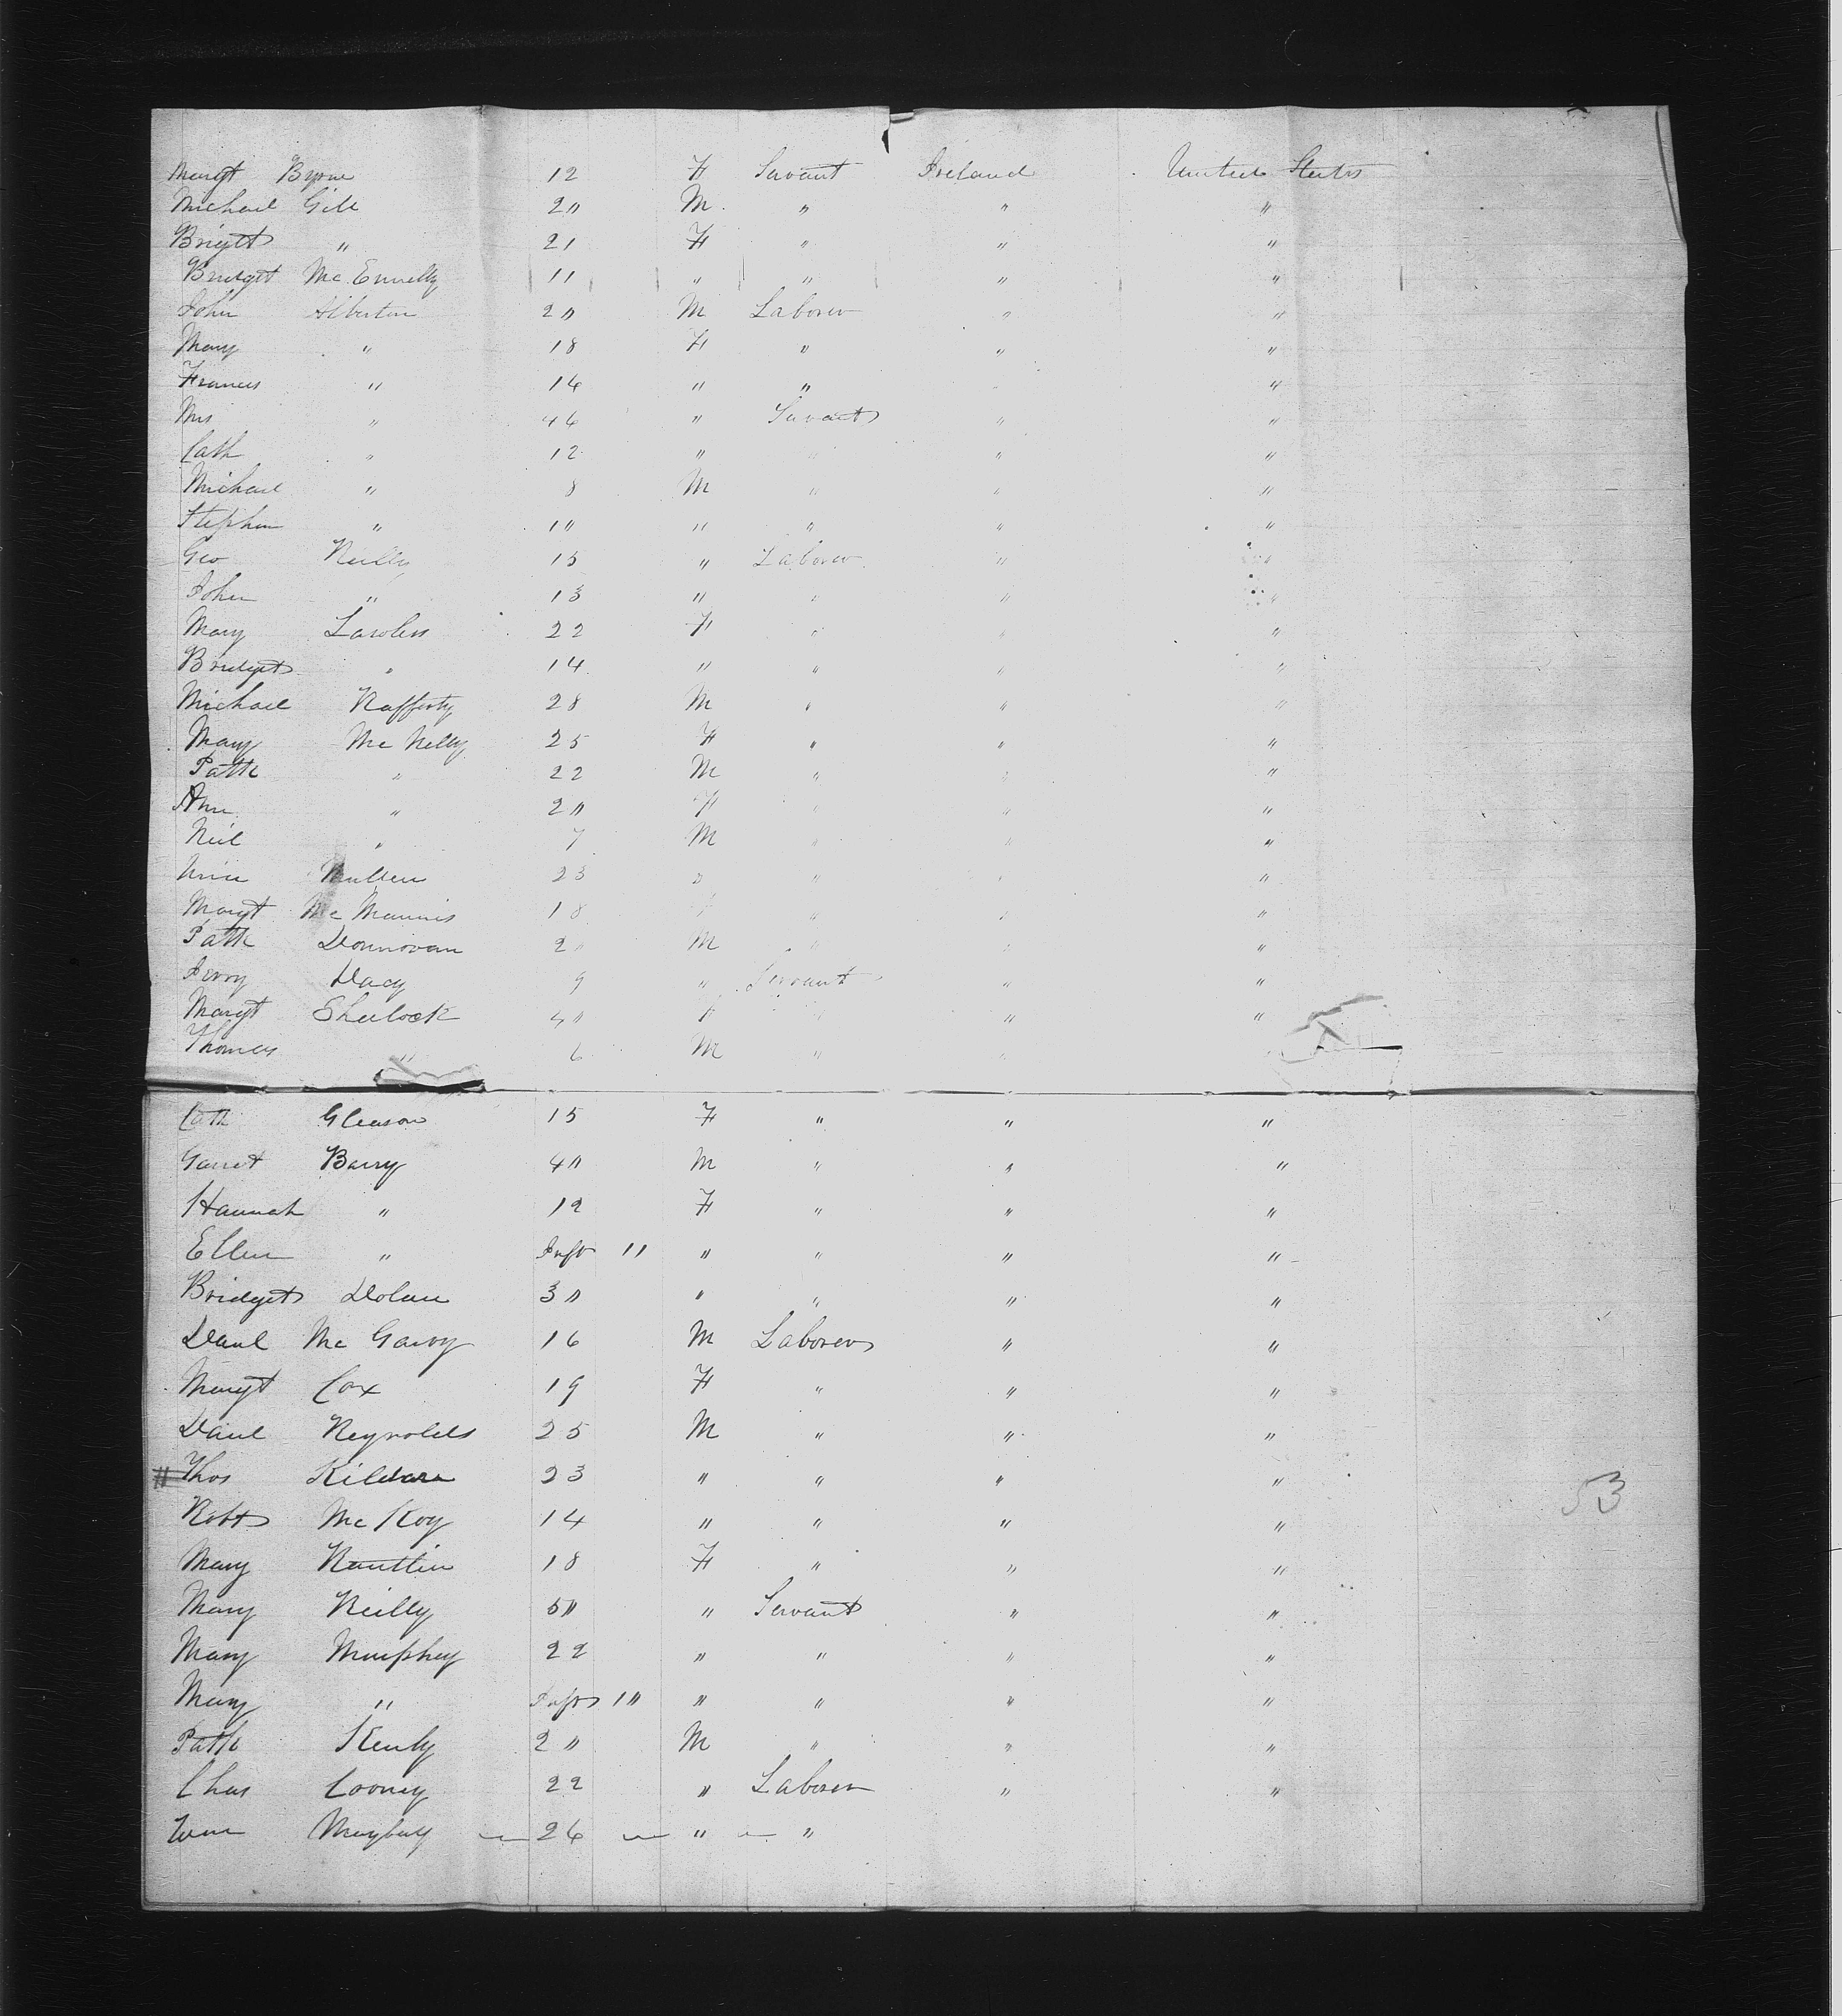 Margt Byrne 12 F Servant Ireland United States
Michael Gill 20 M " " "
Brigtt " 21 F " " "
Bridgt Mc Ennelly 11 " " " "
John Alberton 20 M Laborer " "
Mary " 18 F " " "
Frances " 14 " " " "
Mrs " 46 " Servant " "
Cath " 12 " " " "
Michael " 8 M " " "
Stephen " 10 " " " "
Geo Reilly 15 " Laborer " "
John " 13 " " " "
Mary Lawless 22 F " " "
Bridget " 14 " " " "
Michael Rafferty 28 M " " "
Mary Mc Nelly 25 F " " "
Patk " 22 M " " "
Ann " 20 F " " "
Neil " 7 M " " "
Mullen 23 " " " "
Margt Mc Mannis 18 F " " "
Patk Donnovan 20 M " " "
Jerry Dacy 9 " Servant " "
Margt Sherlock 40 F " " "
Thomas " 6 M " " "
Cath Gleason 15 F " " "
Garret Barry 40 M " " "
Hannah " 12 F " " "
Ellen " Inft 11 " " " "
Bridget Dolan 30 " " " "
Danl Mc Garvy 16 M Laborer " "
Margt Cox 19 F " " "
Danl Reynolds 25 M " " "
# Thos Kildare 23 " " " "
Robt Mc Koy 14 " " " "
Mary Nautlin 18 F " " "
Mary Reilly 50 " Servant " "
Mary Murphey 22 " " " "
Mary " Inft 10 " " " "
Patk Kenly 20 M " " "
Chas Cooney 22 " Laborer " "
Wm Mayberry 26 " "
53